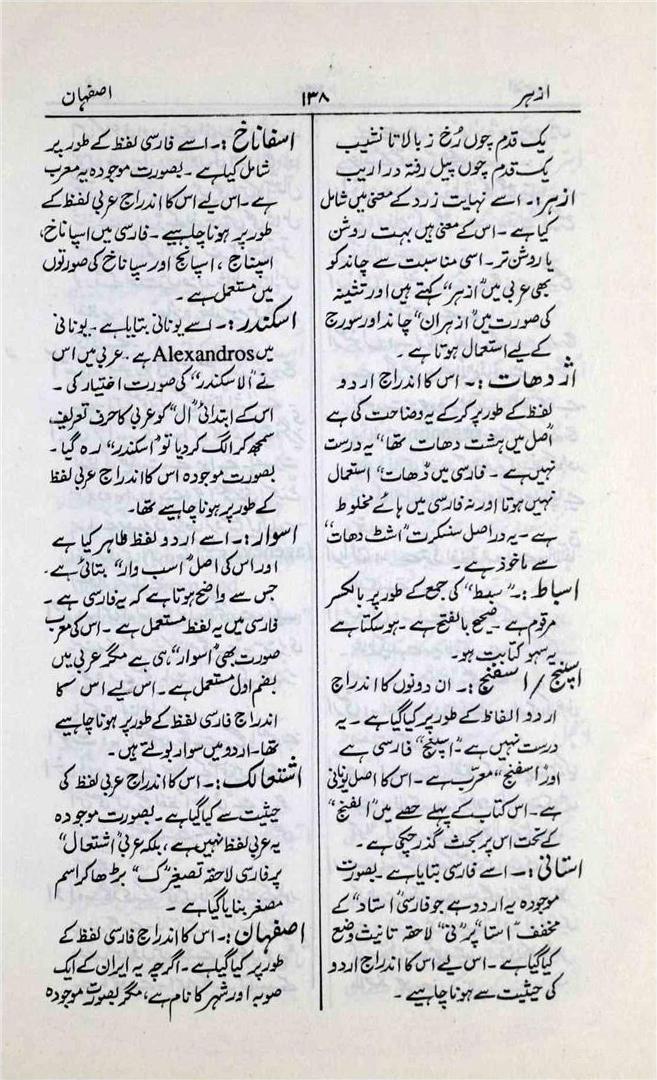 ازہر
۱۳۸
اصفہان
یک قدم چوں رُخ ز بالا تا نشیب
یک قدم چوں پیل رفتہ در اریب
ازہر:۔ اسے نہایت زرد کے معنی میں شامل
کیا ہے۔ اس کے معنی ہیں بہت روشن
یا روشن تر۔ اسی مناسبت سے چاند کو
بھی عربی میں "ازہر" کہتے ہیں اور تثنیہ
کی صورت میں "ازہران" چاند اور سورج
کے لیے استعمال ہوتا ہے۔
اژدھات:۔ اس کا اندراج اردو
لفظ کے طور پر کرکے یہ وضاحت کی ہے
"اصل میں ہشت دھات تھا" یہ درست
نہیں ہے۔ فارسی میں "دھات" استعمال
نہیں ہوتا اور نہ فارسی میں ہائے مخلوط
ہے۔ یہ دراصل سنسکرت "اشٹ دھات"
سے ماخوذ ہے۔
اسباط:۔ "سبط" کی جمع کے طور پر بالکسر
مرقوم ہے۔ صحیح بالفتح ہے۔ ہوسکتا ہے
یہ سہو کتابت ہو۔
اسپنج / اسفنج:۔ ان دونوں کا اندراج
اردو الفاظ کے طور پر کیا گیا ہے۔ یہ
درست نہیں ہے۔ "اسپنج" فارسی ہے
اور "اسفنج" معرب ہے۔ اس کا اصل یونانی
ہے۔ اس کتاب کے پہلے حصے میں "الفنج"
کے تحت اس پر بحث گذر چکی ہے۔
استانی:۔ اسے فارسی بتایا ہے۔ بصورت
موجودہ یہ اردو ہے جو فارسی "استاد" کے
مخفف "استا" پر "نی" لاحقہ تانیث وضع
کیا گیا ہے۔ اس لیے اس کا اندراج اردو
کی حیثیت سے ہونا چاہیے۔
اسفاناخ:۔ اسے فارسی لفظ کے طور پر
شامل کیا ہے۔ بصورت موجودہ یہ معرب
ہے۔ اس لیے اس کا اندراج عربی لفظ کے
طور پر ہونا چاہیے۔ فارسی میں اسپاناخ،
اسپناج، اسپانج اور سپاناخ کی صورتوں
میں مستعمل ہے۔
اسکندر:۔ اسے یونانی بتایا ہے۔ یونانی
میں Alexandros ہے۔ عربی میں اس
نے "الاسکندر" کی صورت اختیار کی۔
اس کے ابتدائی "ال" کو عربی کا حرف تعریف
سمجھ کر الگ کردیا تو "اسکندر" رہ گیا۔
بصورت موجودہ اس کا اندراج عربی لفظ
کے طور پر ہونا چاہیے تھا۔
اسوار:۔ اسے اردو لفظ ظاہر کیا ہے
اور اس کی اصل "اسب وار" بتائی ہے۔
جس سے واضح ہوتا ہے کہ یہ فارسی ہے۔
فارسی میں یہ لفظ مستعمل ہے۔ اس کی معرب
صورت بھی "اسوار" ہی ہے مگر عربی میں
بضم اول مستعمل ہے۔ اس لیے اس کا
اندراج فارسی لفظ کے طور پر ہونا چاہیے
تھا۔ اردو میں سوار بولتے ہیں۔
اشتعالک:۔ اس کا اندراج عربی لفظ کی
حیثیت سے کیا گیا ہے۔ بصورت موجودہ
یہ عربی لفظ نہیں ہے، بلکہ عربی "اشتعال"
پر فارسی لاحقہ تصغیر "ک" بڑھا کر اسم
مصغر بنایا گیا ہے۔
اصفہان:۔ اس کا اندراج فارسی لفظ کے
طور پر کیا گیا ہے۔ اگرچہ یہ ایران کے ایک
صوبہ اور شہر کا نام ہے، مگر بصورت موجودہ